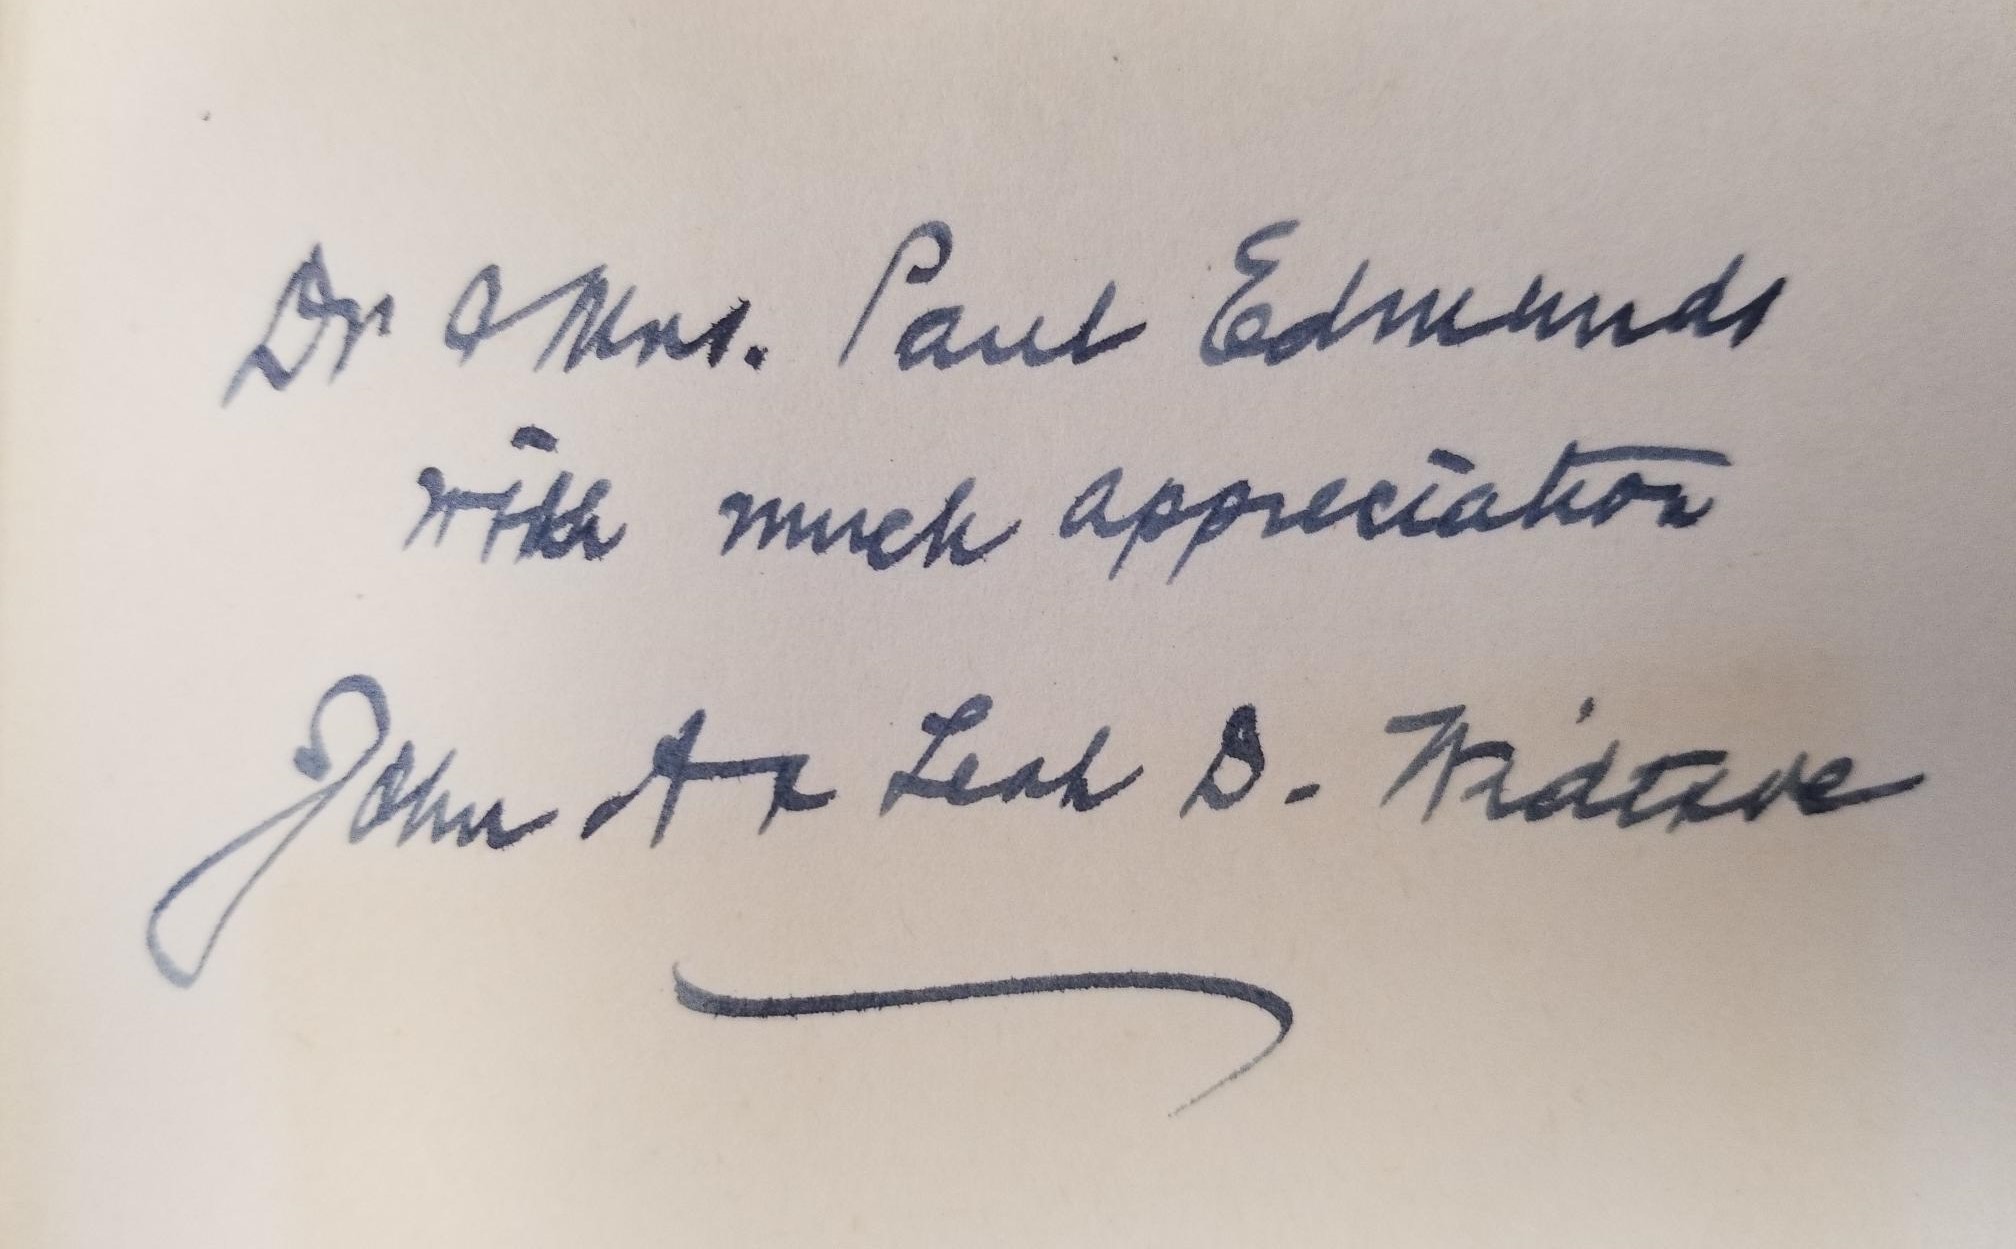 Dr & Mrs. Paul Edmunds
with much appreciation
John A & Leah D. Widtsoe